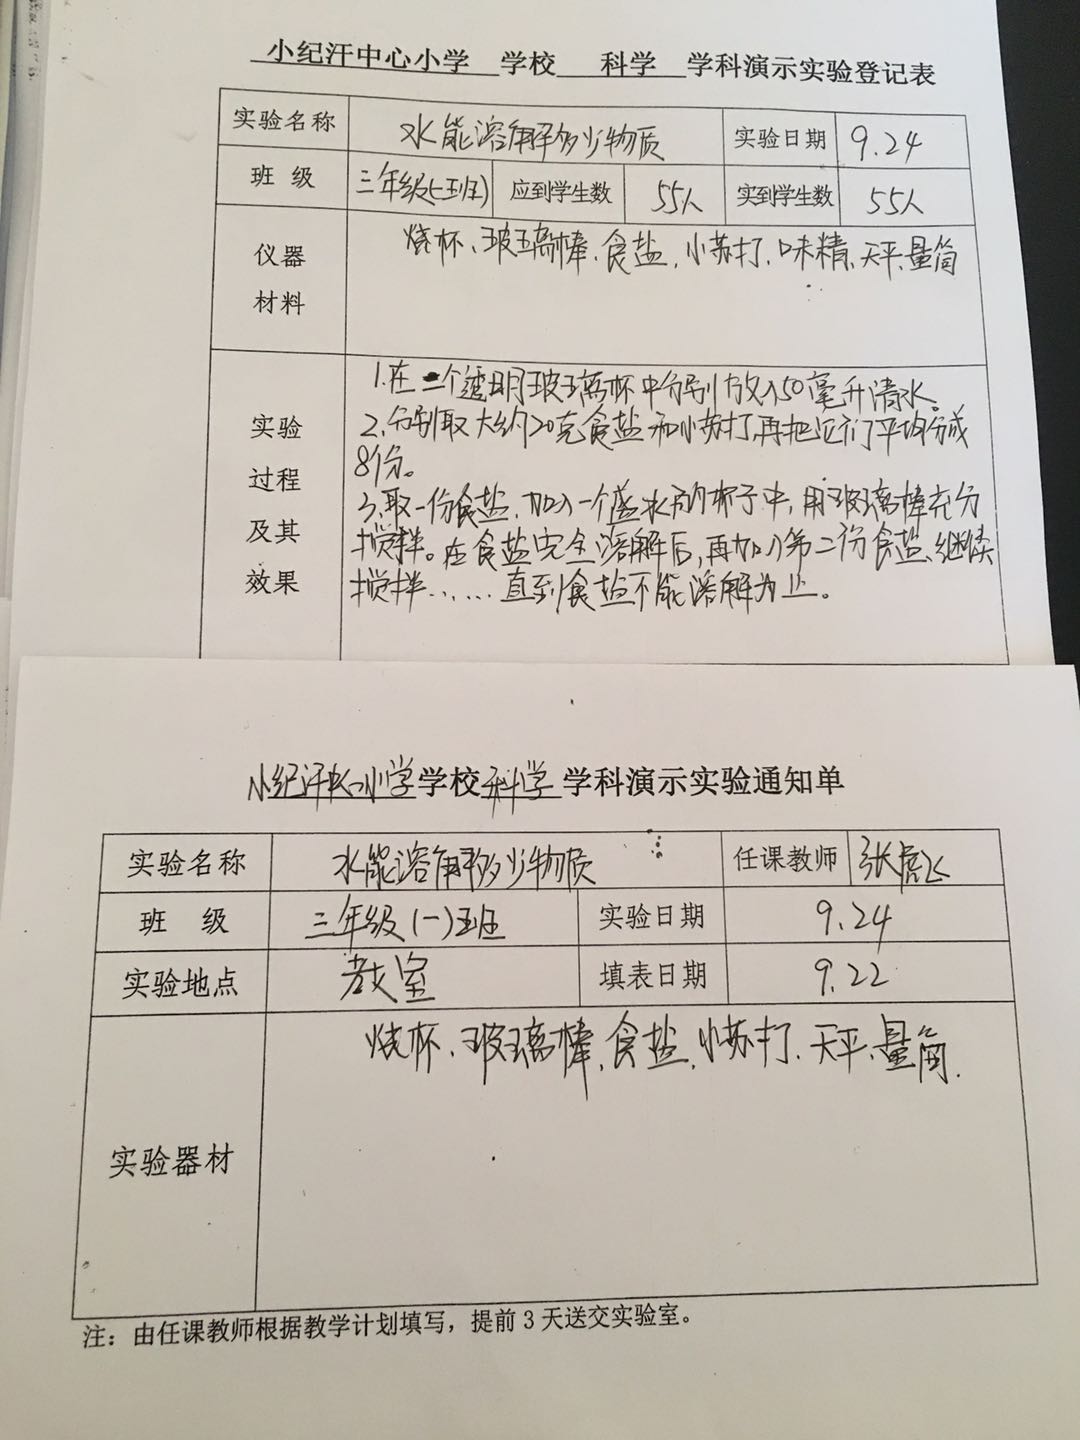 小纪汗中心小学 学校 科学 学科演示实验登记表
实验名称 水能溶解多少物质 实验日期 9.24
班 级 三年级(一班) 应到学生数 55人 实到学生数 55人
仪器材料 烧杯、玻璃棒、食盐、小苏打、味精、天平、量筒
实验过程及其效果
1.在二个透明玻璃杯中分别放入50毫升清水。
2.分别取大约20克食盐和小苏打,再把它们平均分成
8份。
3.取一份食盐,加入一个盛水的杯子中,用玻璃棒充分
搅拌。在食盐完全溶解后,再加入第二份食盐、继续
搅拌……直到食盐不能溶解为止。
小纪汗中心小学学校科学学科演示实验通知单
实验名称 水能溶解多少物质 任课教师 张虎飞
班 级 三年级(一)班 实验日期 9.24
实验地点 教室 填表日期 9.22
实验器材 烧杯、玻璃棒、食盐、小苏打、天平、量筒.
注：由任课教师根据教学计划填写，提前3天送交实验室。